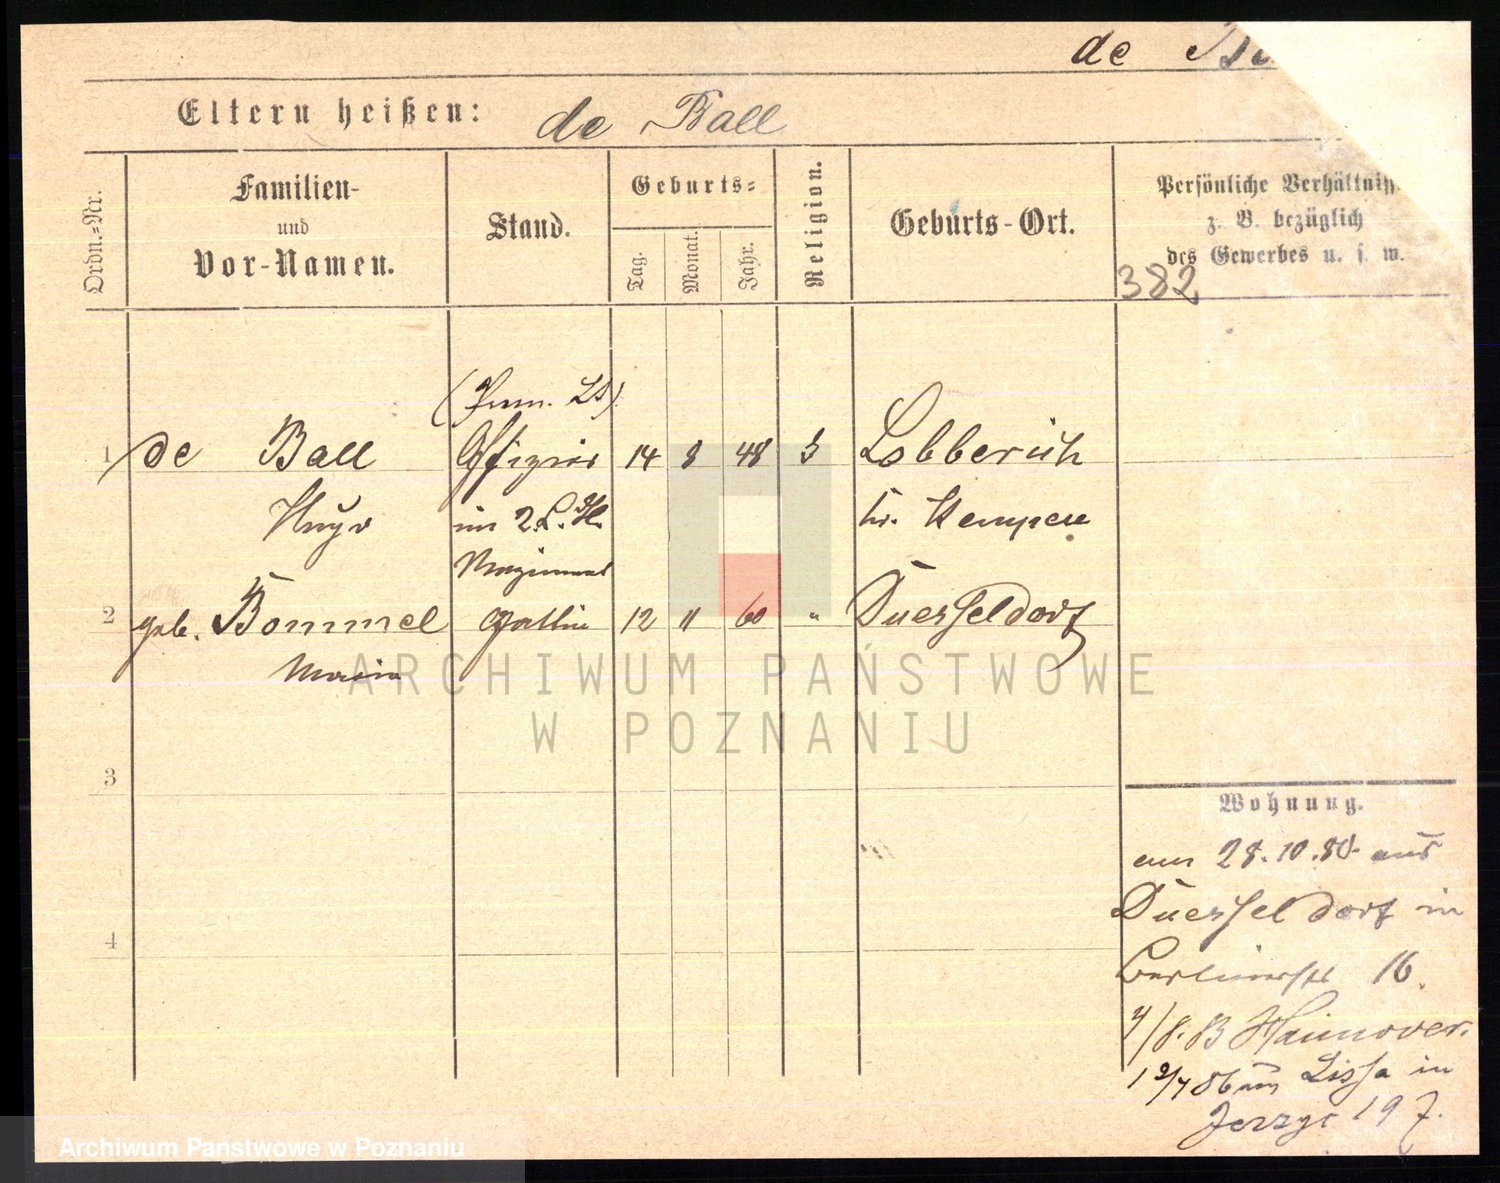 de Ba
Eltern heißen: de Ball
Ordn.-Nr.
Familien-
und
Vor-Namen.
Stand.
Geburts-
Tag.
Monat.
Jahr.
Religion.
Geburts-Ort.
Persönliche Verhältniss
z. B. bezüglich
des Gewerbes u. s. w.
382
1 de Ball Offizier 14 8 48 Lobberich
Hugo im 2. L. H. Kr. Kempen
Regiment
2 geb. Bommel Gattin 12 11 60 " Duesseldorf
Maria
ARCHIWUM PAŃSTWOWE
W POZNANIU
3
Wohnung.
am 28.10.80 aus
Duesseldorf in
Berlinerstr 16.
4
Hannover.
Lissa in
Jerzyc 197.
Archiwum Państwowe w Poznaniu